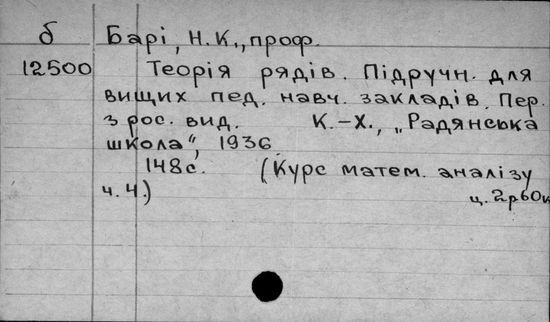 б Барі, Н.К., проф.
12500 Теорія рядів. Підручн. для
вищих пед. навч. закладів. Пер.
з рос. вид. К.-Х., „Радянська
школа", 1936
148с. (Курс матем. аналізу
ч. 4.) ц. 2р60к